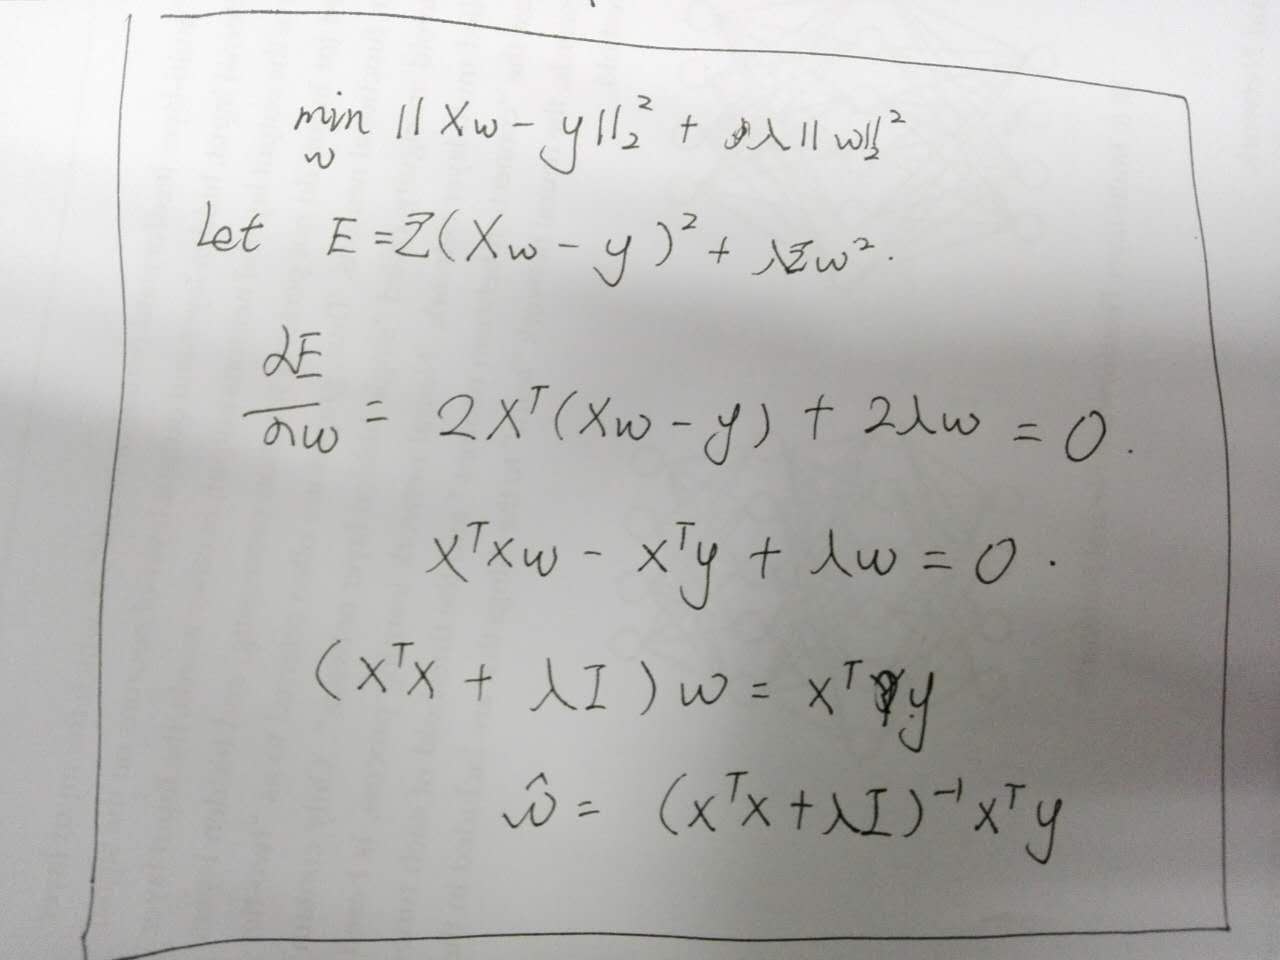 min ‖Xw - y‖₂² + λ‖w‖₂²
w
Let E = Σ(Xw - y)² + λΣw².
∂E
/∂w = 2Xᵀ(Xw - y) + 2λw = 0.
XᵀXw - Xᵀy + λw = 0.
(XᵀX + λI)w = Xᵀy
ŵ = (XᵀX + λI)⁻¹Xᵀy